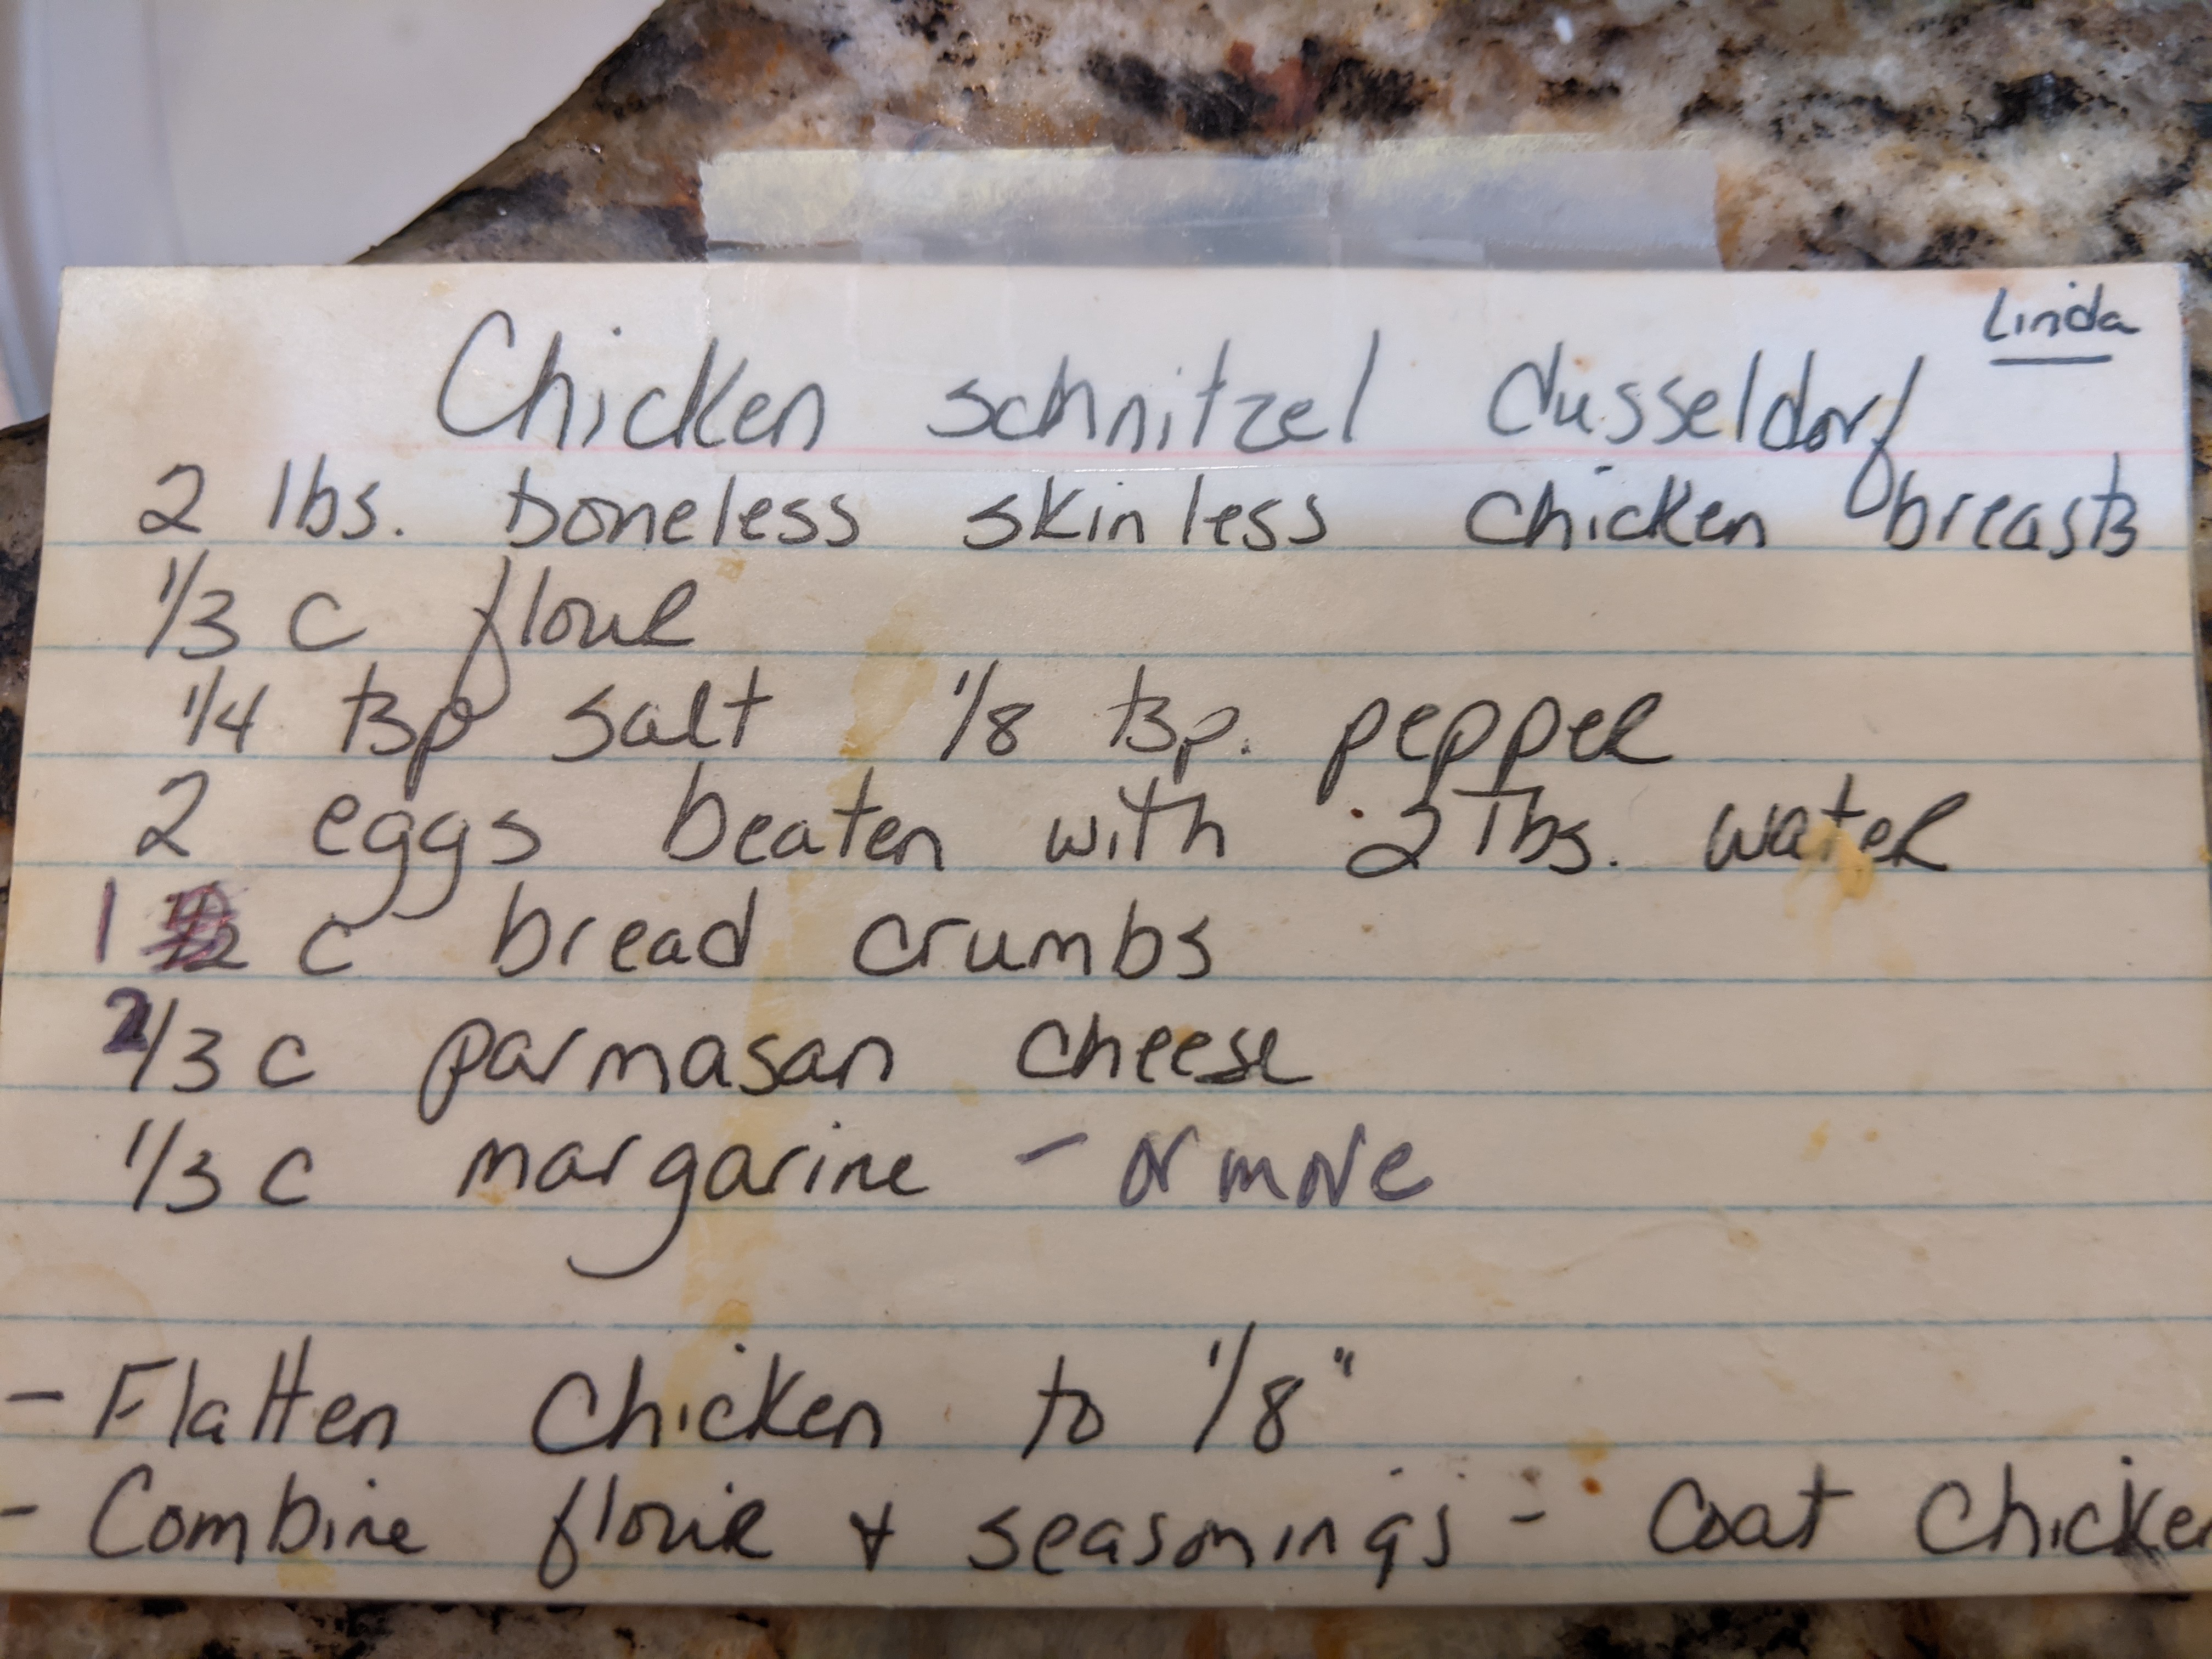 Linda
Chicken schnitzel dusseldorf
2 lbs. boneless skinless chicken breasts
1/3 c flour
1/4 tsp salt 1/8 tsp. pepper
2 eggs beaten with 2 Tbs. water
1 c bread crumbs
2/3 c parmasan cheese
1/3 c margarine - or more
- Flatten Chicken to 1/8"
- Combine flour & seasonings - Coat Chicke